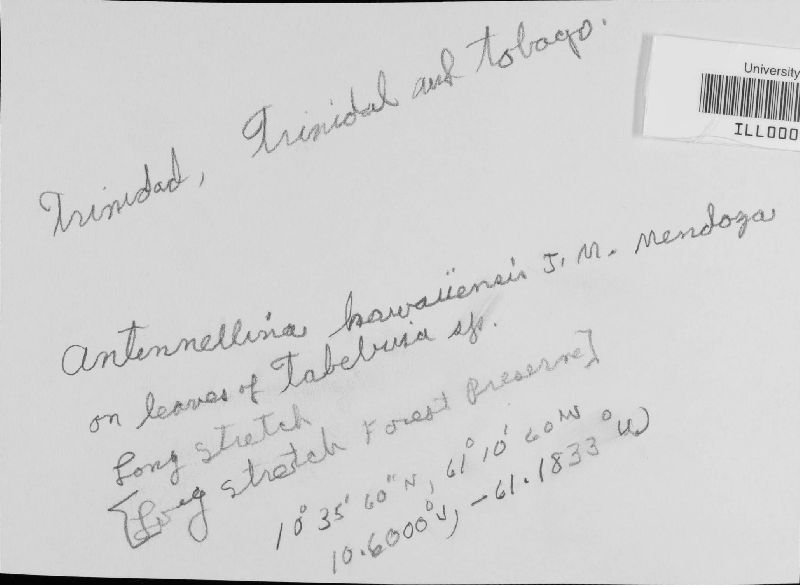 Trinidad, Trinidad and Tobago.
University
ILL000
Antennellina hawaiiensis J. M. Mendoza
on leaves of Tabebuia sp.
Long Stretch
[Long Stretch Forest Preserve]
10° 35' 60" N, 61° 10' 60" W
10.6000° N, -61.1833° W)